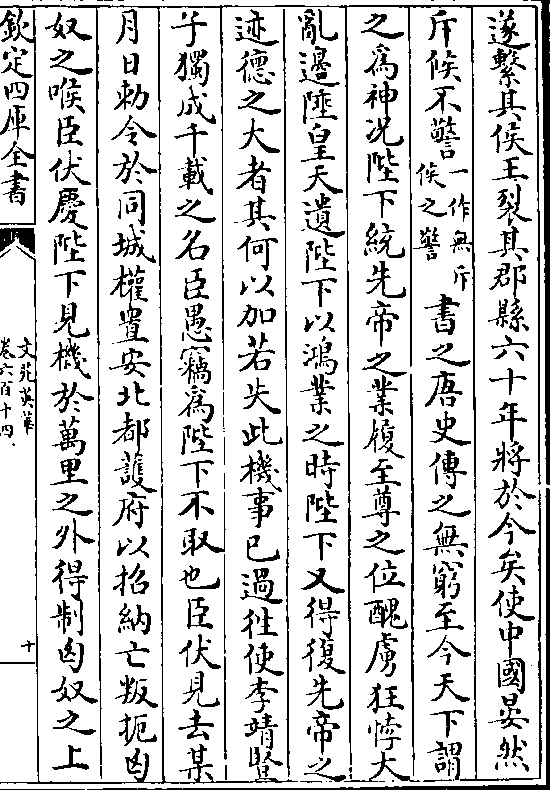 遂繫其侯王裂其郡縣六十年將於今矣使中國晏然
斥候不警一作無斥候之警書之唐史傳之無窮至今天下謂
之爲神況陛下統先帝之業履至尊之位醜虜狂悖大
亂邊陲皇天遺陛下以鴻業之時陛下又得復先帝之
迹德之大者其何以加若失此機事已過往使李靖豎
子獨成千載之名臣愚竊爲陛下不取也臣伏見去某
月日勅令於同城權置安北都護府以招納亡叛扼匈
奴之喉臣伏慶陛下見機於萬里之外得制匈奴之上
欽定四庫全書
文苑英華
卷六百十四
十